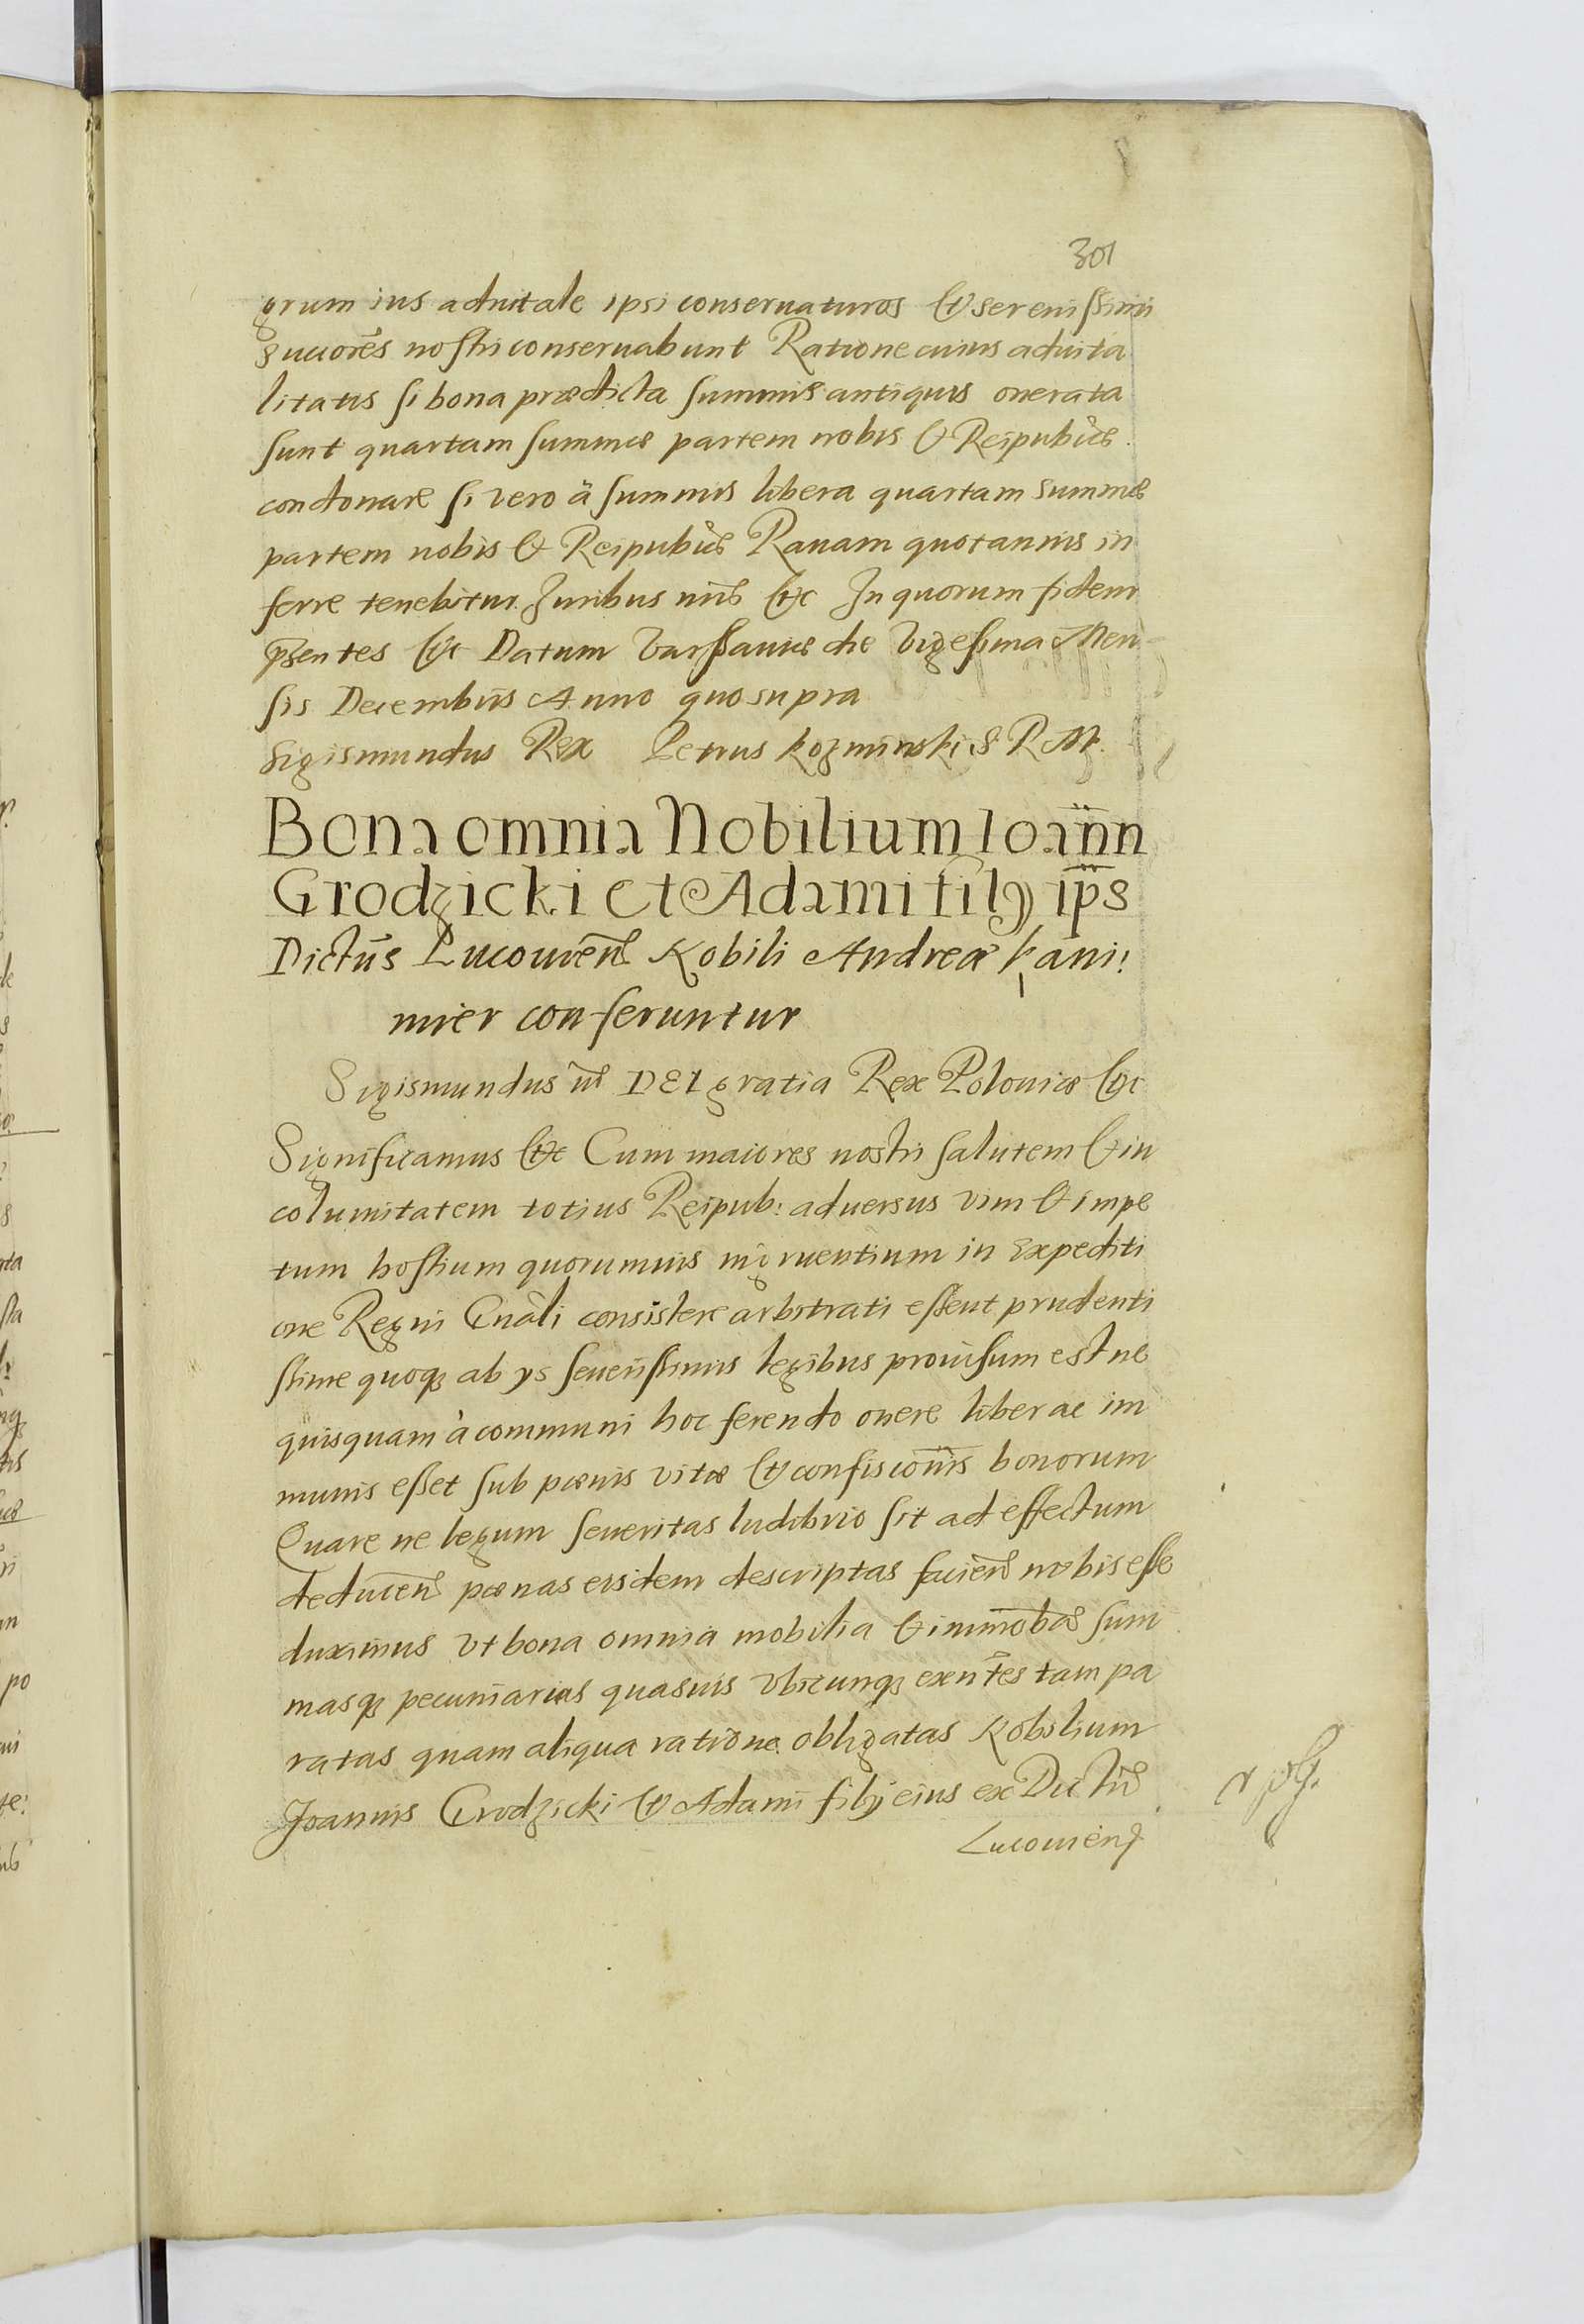 301
grum ius aduitale ipsi conseruaturos & Serenissimi
Succorēs nostri conseruabunt Ratione cuius aduita
litatis si bona prædicta summis antiquis onerata
sunt quartam summæ partem nobis & Reipublicæ
condonare si vero à summis libera quartam summæ
partem nobis & Reipublicæ Rauam quotannis in
ferre tenebitur. Juribus nris &c In quorum fidem
pñsentes &c Datum Varssauiæ die Vigesima Men-
sis Decembris Anno quo supra
Sigismundus Rex Petrus Kozminski S R M
Bona omnia Nobilium Ioann
Grodzicki et Adami filij ips
Dictūs Lucouien Nobili Andreæ Kani:
mier conferuntur
Sigismundus DEI gratia Rex Poloniæ &c
Significamus &c Cum maiores nostri salutem & in
columitatem totius Reipub: aduersus vim & impe
tum hostium quorumuis ingruentium in Expediti
one Regni Gnāli consistere arbitrati essent prudenti
ssime quoq ab ys seuerissimis legibus prouisum est ne
quisquam à communi hoc ferendo onere liber ac im
munis esset sub pœnis vitæ & confisconis bonorum
Quare ne legum seueritas ludibrio sit ad effectum
deducen pœnas eisdem descriptas facien nobis esse
duximus vt bona omnia mobilia & immoba sum
masq pecuniarias quasuis vbicunq exñtes tam pa
ratas quam aliqua ratione obligatas Nobilium
Joannis Grodzicki & Adami filij eius ex Dictu
Lucouien